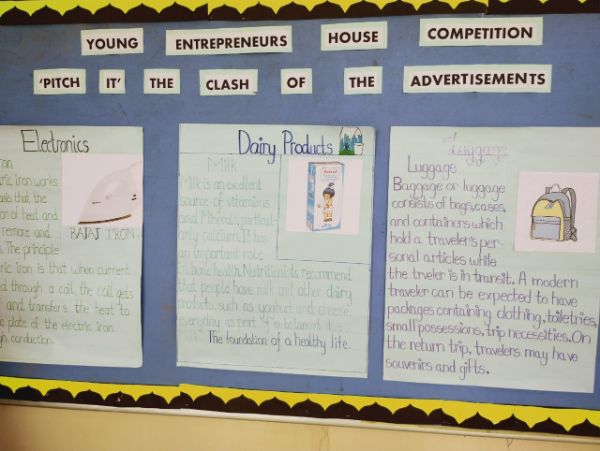 YOUNG ENTREPRENEURS HOUSE COMPETITION
'PITCH IT' THE CLASH OF THE ADVERTISEMENTS
Electronics
ron
tric iron works
ase that the
on of heat and
remore and
s. The principle
ric iron is that when current
ed through a coil, the coil gets
and transfers the heat to
e plate of the electric iron
gh conduction.
BAJAJ IRON
Dairy Products
Milk
Milk is an excellent
source of vitamins
and Minerals, particul-
arly calcium. It has
an important role
in bone health. Nutritionists recommend
that people have milk and other dairy
products, such as yoghurt and cheese,
everyday as part of a balanced diet.
The foundation of a healthy life.
Luggage
Luggage
Baggage or luggage
consists of bags, cases,
and containers which
hold a traveler's per-
sonal articles while
the trveler is in transit. A modern
traveler can be expected to have
packages containing clothing, toiletries,
small possessions, trip necessities. On
the return trip, travelers may have
souvenirs and gifts.